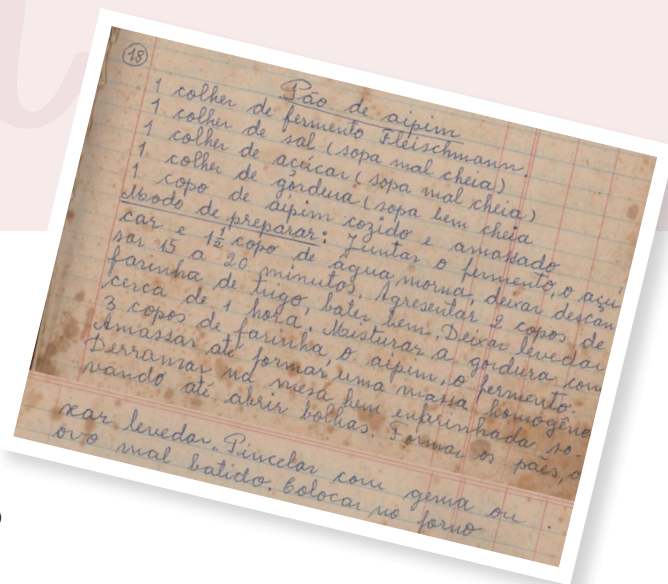 18
Pão de aipim
1 colher de fermento Fleischmann.
1 colher de sal (sopa mal cheia)
1 colher de açúcar (sopa mal cheia)
1 colher de gordura (sopa bem cheia
1 copo de aipim cozido e amassado
Modo de preparar: Juntar o fermento, o açu
car e 1 1/2 copo de água morna, deixar descan
sar 15 a 20 minutos. Agresentar 2 copos de
farinha de trigo, bater bem. Deixar levedar
cerca de 1 hora. Misturar a gordura com
3 copos de farinha, o aipim, o fermento.
Amassar até formar uma massa homogêne
Derramar na mesa bem enfarinhada so
vando até abrir bolhas. Formar os pães,
xar levedar. Pincelar com gema ou
ovo mal batido. Colocar no forno